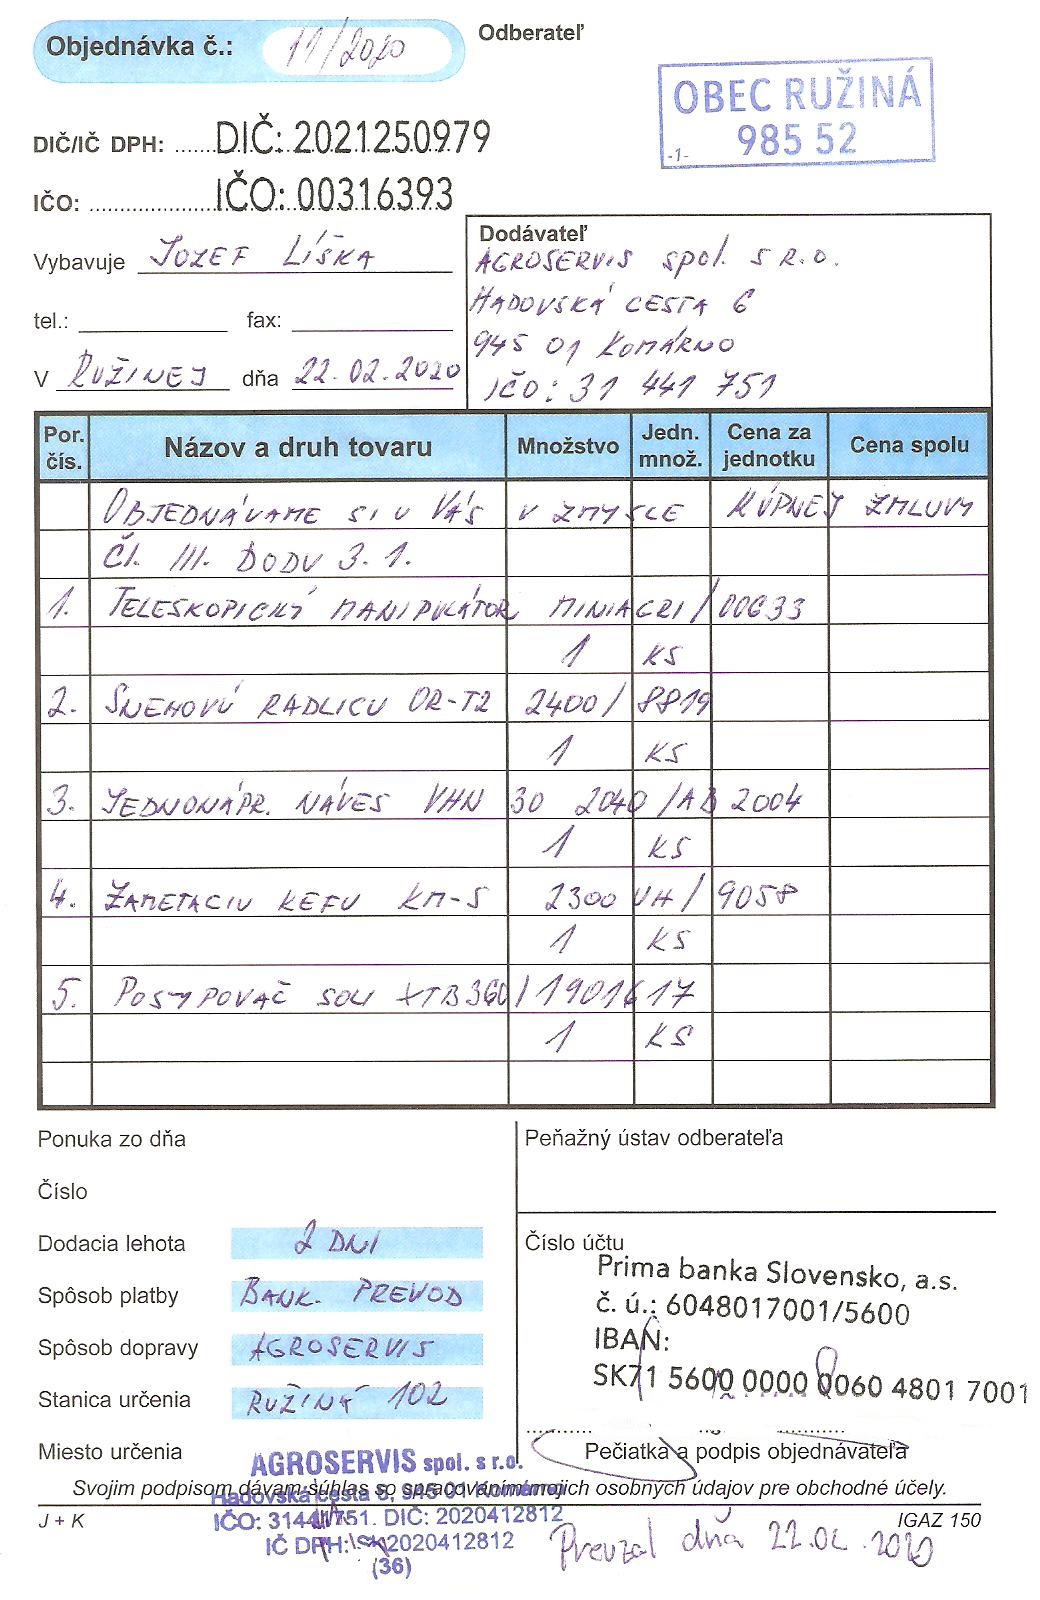 Objednávka č.: 11/2020
Odberateľ
OBEC RUŽINÁ
985 52
-1-
DIČ/IČ DPH: ......DIČ: 2021250979
IČO: ......................IČO: 00316393
Vybavuje JOZEF LÍŠKA
tel.: fax:
V RUŽINEJ dňa 22.02.2020
Dodávateľ
AGROSERVIS spol. S R.O.
HADOVSKÁ CESTA 6
945 01 KOMÁRNO
IČO: 31 441 751
Por. čís. Názov a druh tovaru Množstvo Jedn. množ. Cena za jednotku Cena spolu
OBJEDNÁVAME SI U VÁS V ZMYSLE KÚPNEJ ZMLUVY
Čl. III. BODU 3.1.
1. TELESKOPICKÝ MANIPULÁTOR MINIAGRI/00633
1 KS
2. SNEHOVÚ RADLICU OR-T2 2400/8819
1 KS
3. JEDNONÁPR. NÁVES VHN 30 2040/AB 2004
1 KS
4. ZAMETACIU KEFU KM-S 2300 VH/9058
1 KS
5. POSYPOVAČ SOLI XTB360/1901617
1 KS
Ponuka zo dňa
Číslo
Dodacia lehota 2 DNI
Spôsob platby BANK. PREVOD
Spôsob dopravy AGROSERVIS
Stanica určenia RUŽINÁ 102
Miesto určenia
Peňažný ústav odberateľa
Číslo účtu
Prima banka Slovensko, a.s.
č. ú.: 6048017001/5600
IBAN:
SK71 5600 0000 0060 4801 7001
Pečiatka a podpis objednávateľa
AGROSERVIS spol. s r.o.
Svojim podpisom dávam súhlas so spracovaním mojich osobných údajov pre obchodné účely.
Hadovská cesta 6, 945 01 Komárno
J + K
IGAZ 150
IČO: 31441751. DIČ: 2020412812
IČ DPH: SK2020412812
(36)
Prevzal dňa 22.02.2020